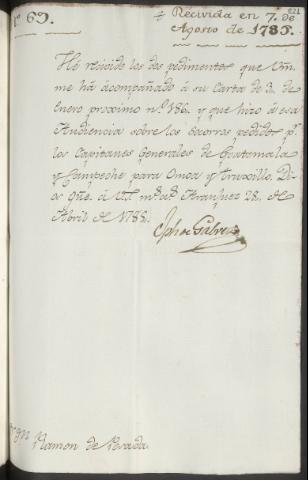 n.º 63.
+ Recivida en 7. de
Agosto de 1785.
Hé recivido los dos pedimentos que Vm.
me há acompañado á su Carta de 3. de
Enero proximo n.º 186. y que hizo á esa
Audiencia sobre los socorros pedidos p.r
los Capitanes Generales de Guatemala
y Campeche para Omoa y Truxillo. Di-
os gue. á Vm. m.s a.s Aranjuez 28. de
Abril de 1785.
Jph de Galvez
Ramon de Posada.